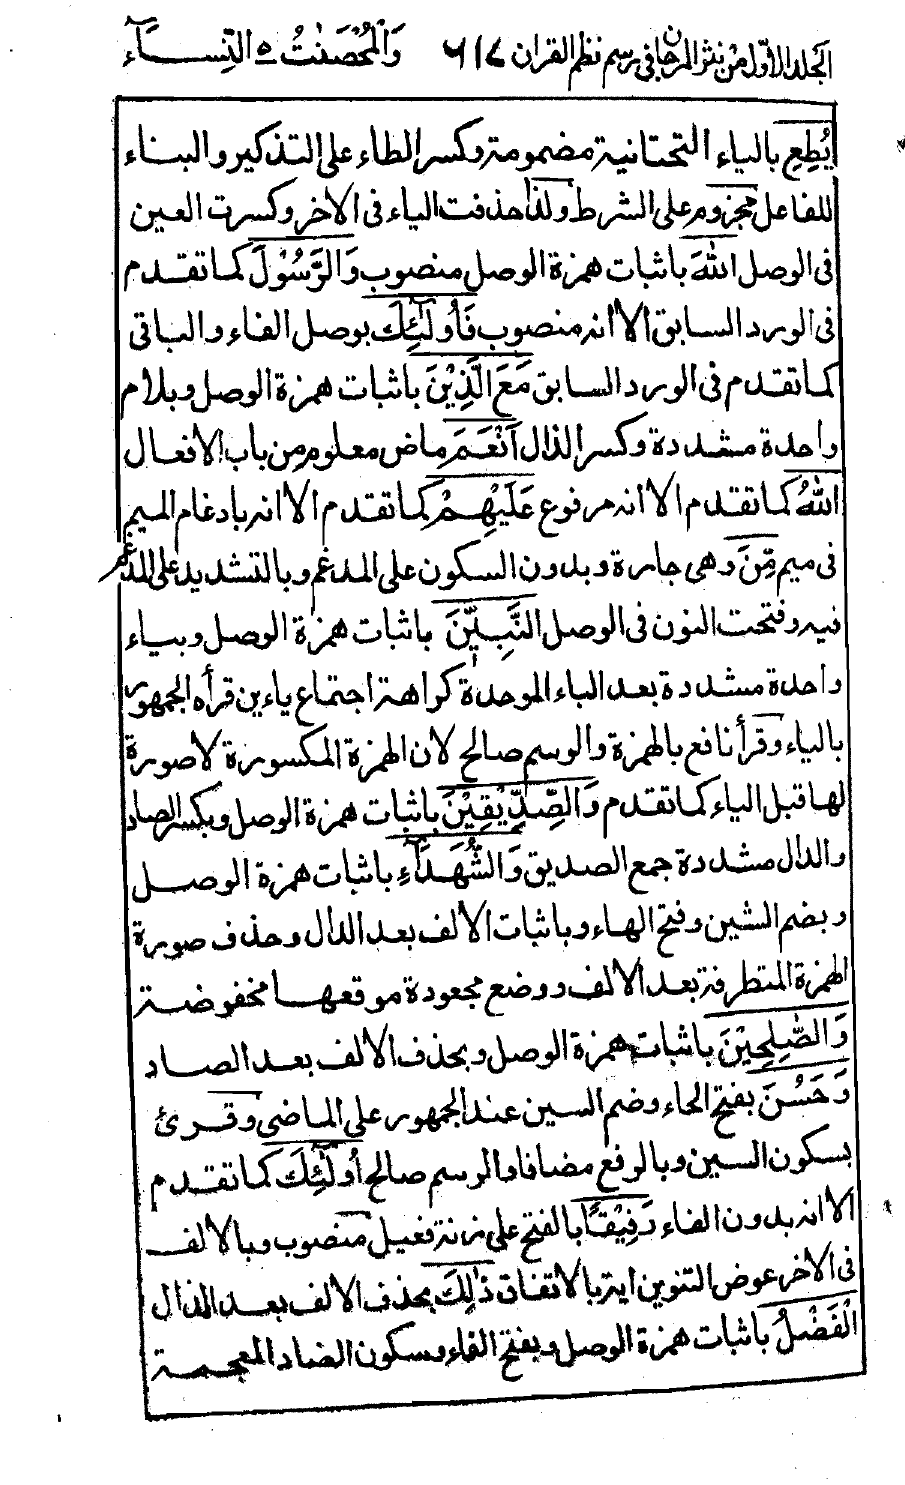 المجلد الاوّل من نثر المرجان في رسم نظم القران ٦١٧ وَالْمُحْصَنٰتُ ٥ النِّسَآء
يُطِعِ بالياء التحتانية مضمومة وكسر الطاء على التذكير والبناء
للفاعل مجزوم على الشرط ولذا حذفت الياء فى الاخر وكسرت العين
فى الوصل اللهَ باثبات همزة الوصل منصوب وَالرَّسُوْلَ كما تقدم
فى الورد السابق الا انه منصوب فَاُولٰٓئِكَ بوصل الفاء والباقى
كما تقدم فى الورد السابق مَعَ الَّذِيْنَ باثبات همزة الوصل وبلام
واحدة مشددة وكسر الذال اَنْعَمَ ماض معلوم من باب الافعال
اللهُ كما تقدم الا انه مرفوع عَلَيْهِمْ كما تقدم الا انه بادغام الميم
فى ميم مِّنَ وهى جارة وبدون السكون على المدغم وبالتشديد على المدغم
فيه وفتحت النون فى الوصل النَّبِيّٖنَ باثبات همزة الوصل وبياء
واحدة مشددة بعد الباء الموحدة كراهة اجتماع ياءين قرأه الجمهور
بالياء وقرأ نافع بالهمزة والرسم صالح لان الهمزة المكسورة لا صورة
لها قبل الياء كما تقدم وَالصِّدِّيْقِيْنَ باثبات همزة الوصل وبكسر الصاد
والدال مشددة جمع الصديق وَالشُّهَدَآءِ باثبات همزة الوصل
وبضم الشين وفتح الهاء وباثبات الالف بعد الدال وحذف صورة
الهمزة المتطرفة بعد الالف ووضع مجعودة موقعها مخفوضة
وَالصّٰلِحِيْنَ باثبات همزة الوصل وبحذف الالف بعد الصاد
وَحَسُنَ بفتح الحاء وضم السين عند الجمهور على الماضى وقرئ
بسكون السين وبالرفع مضافا والرسم صالح اُولٰٓئِكَ كما تقدم
الا انه بدون الفاء رَفِيْقًا بالفتح على زنة فعيل منصوب وبالالف
فى الاخر عوض التنوين اية بالاتفاق ذٰلِكَ بحذف الالف بعد الذال
الْفَضْلُ باثبات همزة الوصل وبفتح الفاء وسكون الضاد المعجمة